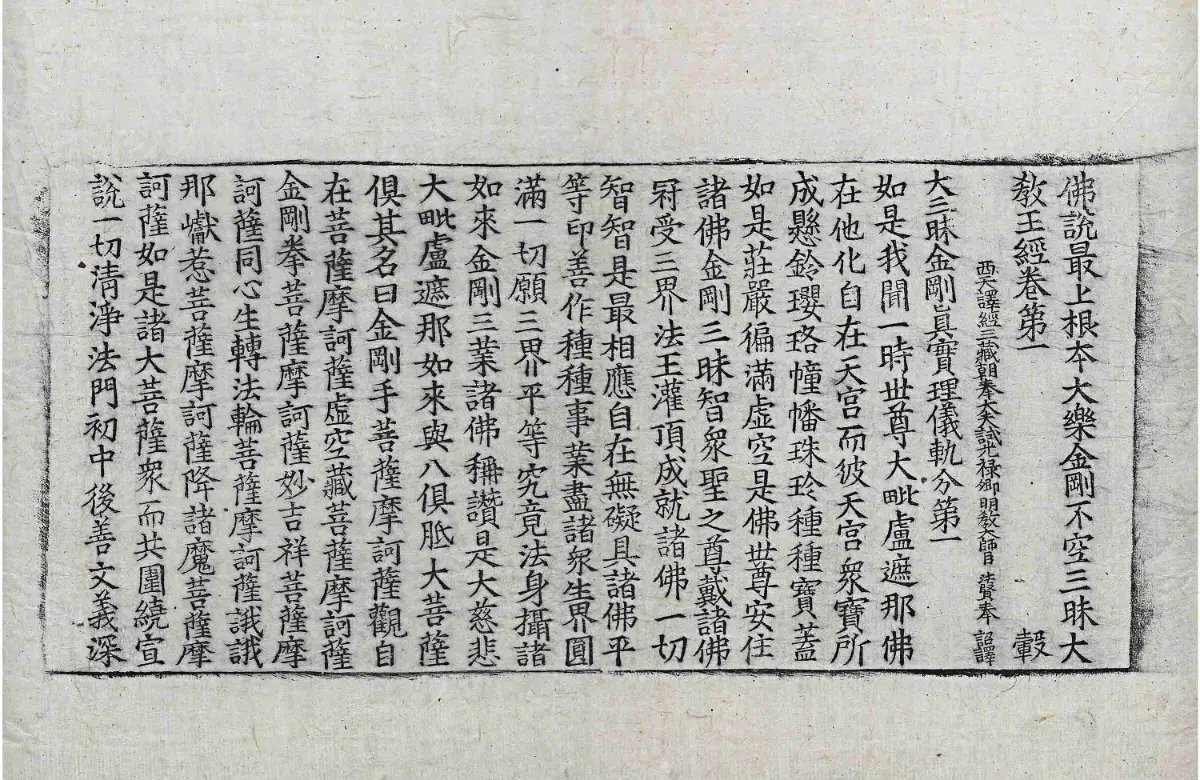 佛說最上根本大樂金剛不空三昧大
教王經卷第一　轂
西天譯經三藏朝奉大夫試光祿卿明教大師臣法賢奉　詔譯
大三昧金剛眞實理儀軌分第一
如是我聞一時世尊大毗盧遮那佛
在他化自在天宮而彼天宮衆寶所
成懸鈴瓔珞幢幡珠玲種種寶蓋
如是莊嚴徧滿虛空是佛世尊安住
諸佛金剛三昧智衆聖之尊戴諸佛
冠受三界法王灌頂成就諸佛一切
智智是最相應自在無礙具諸佛平
等印善作種種事業盡諸衆生界圓
滿一切願三界平等究竟法身攝諸
如來金剛三業諸佛稱讚是大慈悲
大毗盧遮那如來與八俱胝大菩薩
俱其名曰金剛手菩薩摩訶薩觀自
在菩薩摩訶薩虛空藏菩薩摩訶薩
金剛拳菩薩摩訶薩妙吉祥菩薩摩
訶薩同心生轉法輪菩薩摩訶薩誐誐
那巘惹菩薩摩訶薩降諸魔菩薩摩
訶薩如是諸大菩薩衆而共圍繞宣
說一切清淨法門初中後善文義深